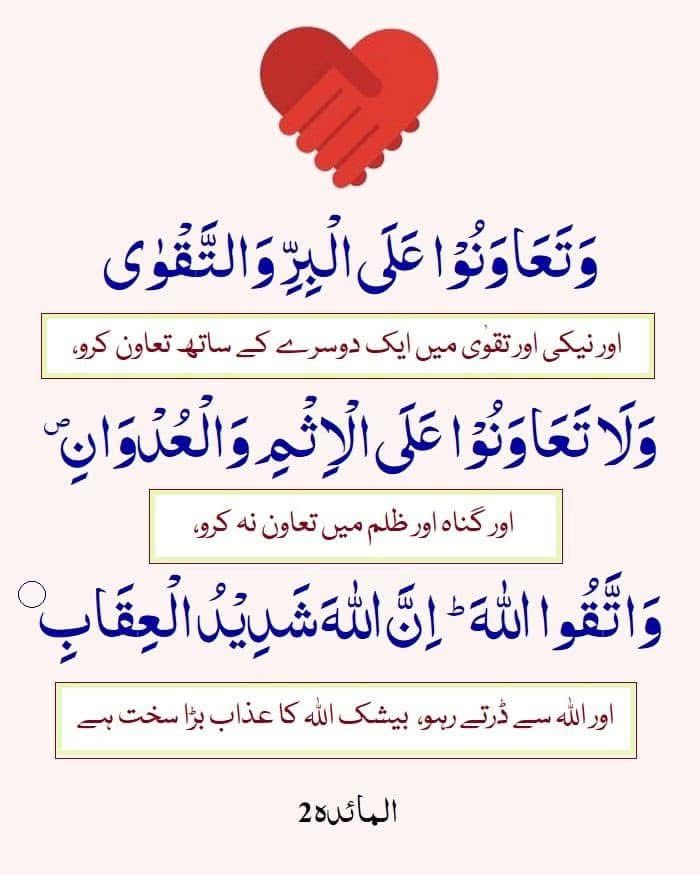 وَتَعَاوَنُوْا عَلَى الْبِرِّ وَالتَّقْوٰى
اور نیکی اور تقوٰی میں ایک دوسرے کے ساتھ تعاون کرو،
وَلَا تَعَاوَنُوْا عَلَى الْاِثْمِ وَالْعُدْوَانِ ۖ
اور گناہ اور ظلم میں تعاون نہ کرو،
وَاتَّقُوا اللّٰهَ ؕ اِنَّ اللّٰهَ شَدِيْدُ الْعِقَابِ ۝
اور اللہ سے ڈرتے رہو، بیشک اللہ کا عذاب بڑا سخت ہے
المائدہ 2